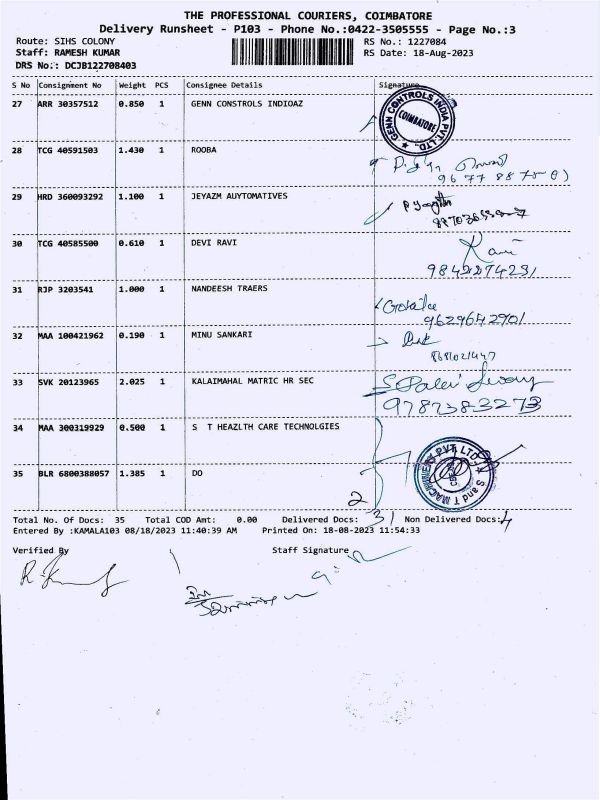 THE PROFESSIONAL COURIERS, COIMBATORE
Delivery Runsheet - P103 - Phone No.:0422-3505555 - Page No.:3
Route: SIHS COLONY RS No.: 1227084
Staff: RAMESH KUMAR RS Date: 18-Aug-2023
DRS No.: DCJB122708403
S No Consignment No Weight PCS Consignee Details Signature
27 ARR 30357512 0.850 1 GENN CONSTROLS INDIOAZ
GENN CONTROLS INDIA PVT. LTD.,
COIMBATORE
28 TCG 40591503 1.430 1 ROOBA
29 HRD 360093292 1.100 1 JEYAZM AUYTOMATIVES
30 TCG 40585500 0.610 1 DEVI RAVI
Ravi
9842274231
31 RJP 3203541 1.000 1 NANDEESH TRAERS
9629642901
32 MAA 100421962 0.190 1 MINU SANKARI
33 SVK 20123965 2.025 1 KALAIMAHAL MATRIC HR SEC
9787383273
34 MAA 300319929 0.500 1 S T HEAZLTH CARE TECHNOLGIES
35 BLR 6800388057 1.385 1 DO
2
S and T MACHINERY PVT LTD
Total No. Of Docs: 35 Total COD Amt: 0.00 Delivered Docs: 31 Non Delivered Docs: 4
Entered By :KAMALA103 08/18/2023 11:40:39 AM Printed On: 18-08-2023 11:54:33
Verified By Staff Signature